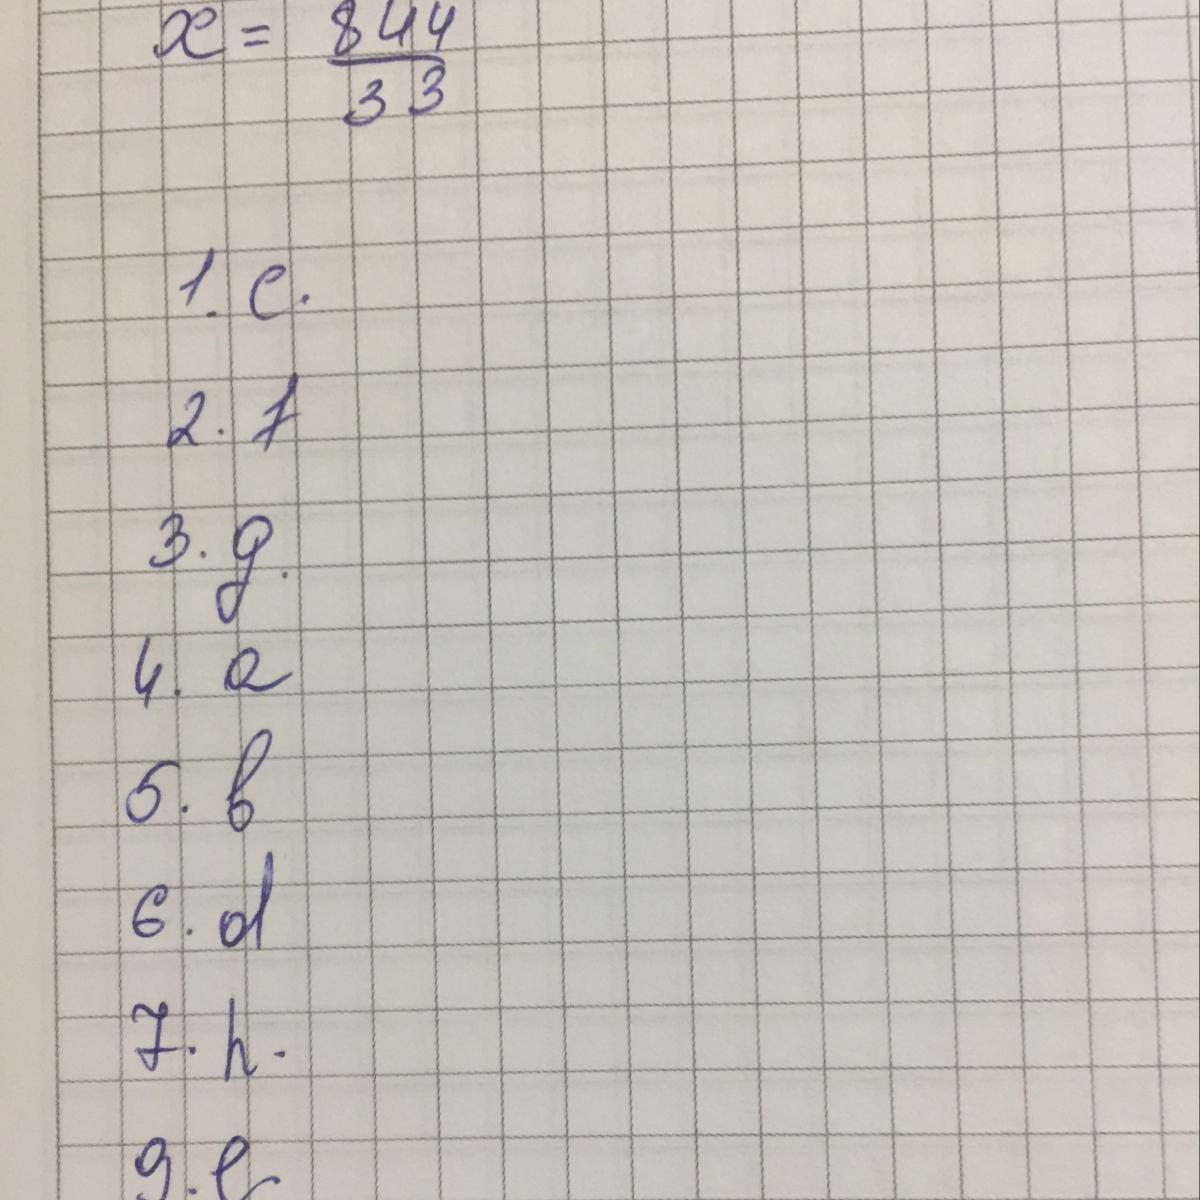 x = 844
33
1. c.
2. f
3. g.
4. a
5. b
6. d
7. h.
9. e